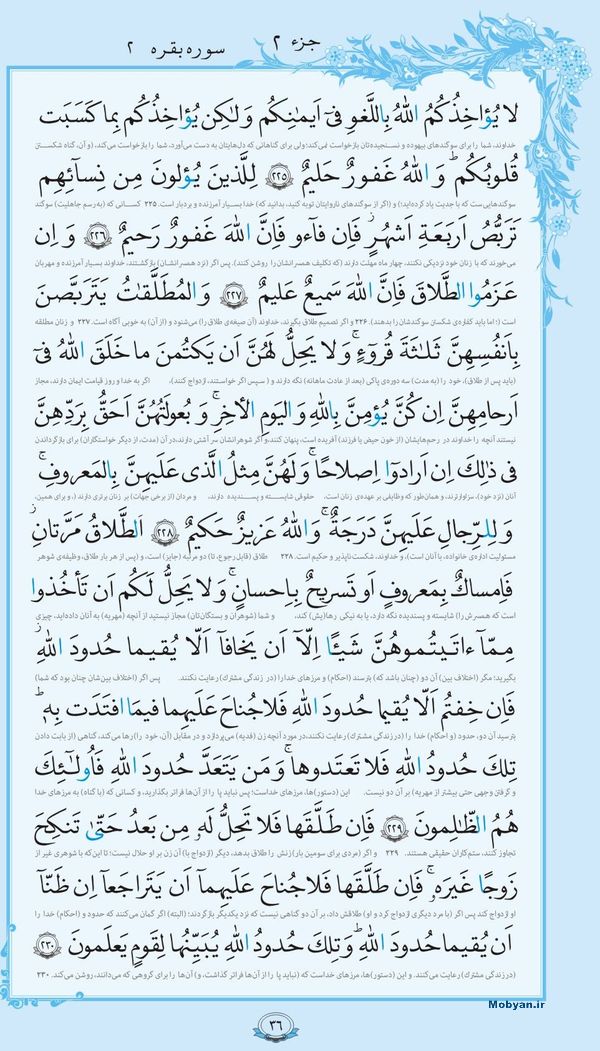 جزء ۲
سوره بقره ۲
لا يُؤاخِذُكُمُ اللهُ بِاللَّغوِ فى اَيمانِكُم وَلـكِن يُؤاخِذُكُم بِما كَسَبَت
خداوند، شما را برای سوگندهای بیهوده و نسنجیده‌تان بازخواست نمی‌کند؛ ولی برای گناهانی که دل‌هایتان به دست می‌آورد، شما را بازخواست می‌کند، (و آن، گناه شکستن
قُلوبُكُم وَ اللهُ غَفورٌ حَليمٌ ﴿٢٢٥﴾ لِلَّذينَ يُؤلونَ مِن نِسآئِهِم
سوگندهایی‌ست که با جدیت یاد کرده‌اید؛) و (اگر از سوگندهای ناروایتان توبه کنید، بدانید که) خدا بسیار آمرزنده و بردبار است. ۲۲۵ کسانی که (به رسم جاهلیت) سوگند
تَرَبُّصُ اَربَعَةِ اَشهُرٍ فَاِن فآءو فَاِنَّ اللهَ غَفورٌ رَحيمٌ ﴿٢٢٦﴾ وَ اِن
می‌خورند که با زنان خود نزدیکی نکنند، چهار ماه مهلت دارند (که تکلیف همسرانشان را روشن کنند). پس اگر (نزد همسرانشان) بازگشتند، خداوند بسیار آمرزنده و مهربان
عَزَمُوا الطَّلاقَ فَاِنَّ اللهَ سَميعٌ عَليمٌ ﴿٢٢٧﴾ وَ المُطَلَّقاتُ يَتَرَبَّصنَ
است (؛ اما باید کفاره‌ی شکستن سوگندشان را بدهند). ۲۲۶ و اگر تصمیم طلاق بگیرند، خداوند (آن صیغه‌ی طلاق را) می‌شنود و (از آن) به خوبی آگاه است. ۲۲۷ و زنان مطلقه
بِاَنفُسِهِنَّ ثَلـثَةَ قُروٓءٍ وَ لا يَحِلُّ لَهُنَّ اَن يَكتُمنَ ما خَلَقَ اللهُ فى
(باید پس از طلاق)، خود را (به مدت) سه دوره‌ی پاکی (بعد از عادت ماهانه) نگه دارند و (سپس اگر خواستند، ازدواج کنند)، اگر به خدا و روز قیامت ایمان دارند، مجاز
اَرحامِهِنَّ اِن كُنَّ يُؤمِنَّ بِاللهِ وَ اليَومِ الأخِرِ وَ بُعولَتُهُنَّ اَحَقُّ بِرَدِّهِنَّ
نیستند آنچه را خداوند در رحم‌هایشان (از خون حیض یا فرزند) آفریده است، پنهان کنند. و اگر شوهرانشان سر آشتی دارند، در آن (مدت، از دیگر خواستگاران) برای بازگرداندن
فى ذلِكَ اِن اَرادوا اِصلاحًا وَ لَهُنَّ مِثلُ الَّذى عَلَيهِنَّ بِالمَعروفِ
آنان (نزد خود)، سزاوارترند. و همان‌طور که وظایفی بر عهده‌ی زنان است، حقوقی شایسته و پسندیده دارند، و مردان (از برخی جهات) بر زنان برتری دارند (، و برای همین،
وَ لِلرِّجالِ عَلَيهِنَّ دَرَجَةٌ وَ اللهُ عَزيزٌ حَكيمٌ ﴿٢٢٨﴾ اَلطَّلاقُ مَرَّتانِ
مسئولیت اداره‌ی خانواده، با آنان است)، و خداوند، شکست‌ناپذیر و حکیم است. ۲۲۸ طلاق (قابل رجوع، تا) دو مرتبه (جایز) است، و (پس از هر بار طلاق، وظیفه‌ی شوهر
فَاِمساكٌ بِمَعروفٍ اَو تَسريحٌ بِاِحسانٍ وَ لا يَحِلُّ لَكُم اَن تَأخُذوا
است که همسرش را) شایسته و پسندیده نگه دارد، یا به نیکی رها(یش) کند. و شما (شوهران و بستگان‌تان) مجاز نیستید از آنچه (مهریه) به آنان داده‌اید، چیزی
مِمّآ ءاتَيتُموهُنَّ شَيئًا اِلّآ اَن يَخافآ اَلّا يُقيما حُدودَ اللهِ
بگیرید؛ مگر (اختلاف بین) آن دو (چنان باشد که) بترسند (احکام) و مرزهای خدا را (در زندگی مشترک) رعایت نکنند. پس اگر (اختلاف بین‌شان چنان بود که شما)
فَاِن خِفتُم اَلّا يُقيما حُدودَ اللهِ فَلا جُناحَ عَلَيهِما فيمَا افتَدَت بِه
بترسید آن دو، حدود (و احکام) خدا را (در زندگی مشترک) رعایت نکنند، در مورد آنچه زن (فدیه) می‌پردازد و در مقابل (آن، خود را) رها می‌کند، گناهی (از بابت دادن
تِلكَ حُدودُ اللهِ فَلا تَعتَدوها وَ مَن يَتَعَدَّ حُدودَ اللهِ فَاُولـئِكَ
و گرفتن وجهی حتی بیشتر از مهریه) بر آن دو نیست. این (دستور)ها، مرزهای خداست؛ پس نباید پا را از آن‌ها فراتر بگذارید، و کسانی که (با گناه) به مرزهای خدا
هُمُ الظّالِمونَ ﴿٢٢٩﴾ فَاِن طَلَّقَها فَلا تَحِلُّ لَهُ مِن بَعدُ حَتّى تَنكِحَ
تجاوز کنند، ستم‌کاران حقیقی هستند. ۲۲۹ و اگر (مردی برای سومین بار) زنش را طلاق بدهد، دیگر (ازدواج با) آن زن بر او حلال نیست؛ تا این‌که با شوهری غیر از
زَوجًا غَيرَهُ فَاِن طَلَّقَها فَلا جُناحَ عَلَيهِمآ اَن يَتَراجَعآ اِن ظَنّآ
او ازدواج کند پس اگر (با مرد دیگری ازدواج کرد و او) طلاقش داد، بر آن دو گناهی نیست که نزد یکدیگر بازگردند؛ (البته) اگر گمان می‌کنند که حدود و (احکام) خدا را
اَن يُقيما حُدودَ اللهِ وَ تِلكَ حُدودُ اللهِ يُبَيِّنُها لِقَومٍ يَعلَمونَ ﴿٢٣٠﴾
(در زندگی مشترک) رعایت می‌کنند. و این (دستور)ها، مرزهای خداست که (نباید پا را از آن‌ها فراتر گذاشت، و) آن‌ها را برای گروهی که می‌دانند، روشن می‌کند. ۲۳۰
Mobyan.ir
۳۶